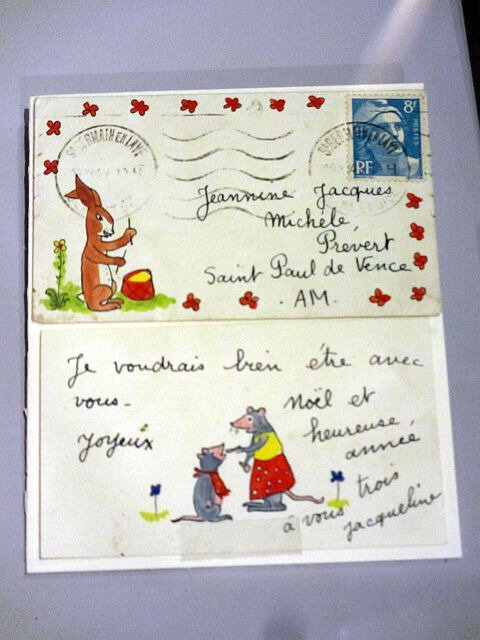 8F
POSTES
RF
ST GERMAIN EN LAYE
Jeannine Jacques
Michèle,
Prévert
Saint Paul de Vence
. AM.
Je voudrais bien être avec
vous-
Joyeux Noël et
heureuse,
année
à vous trois
Jacqueline